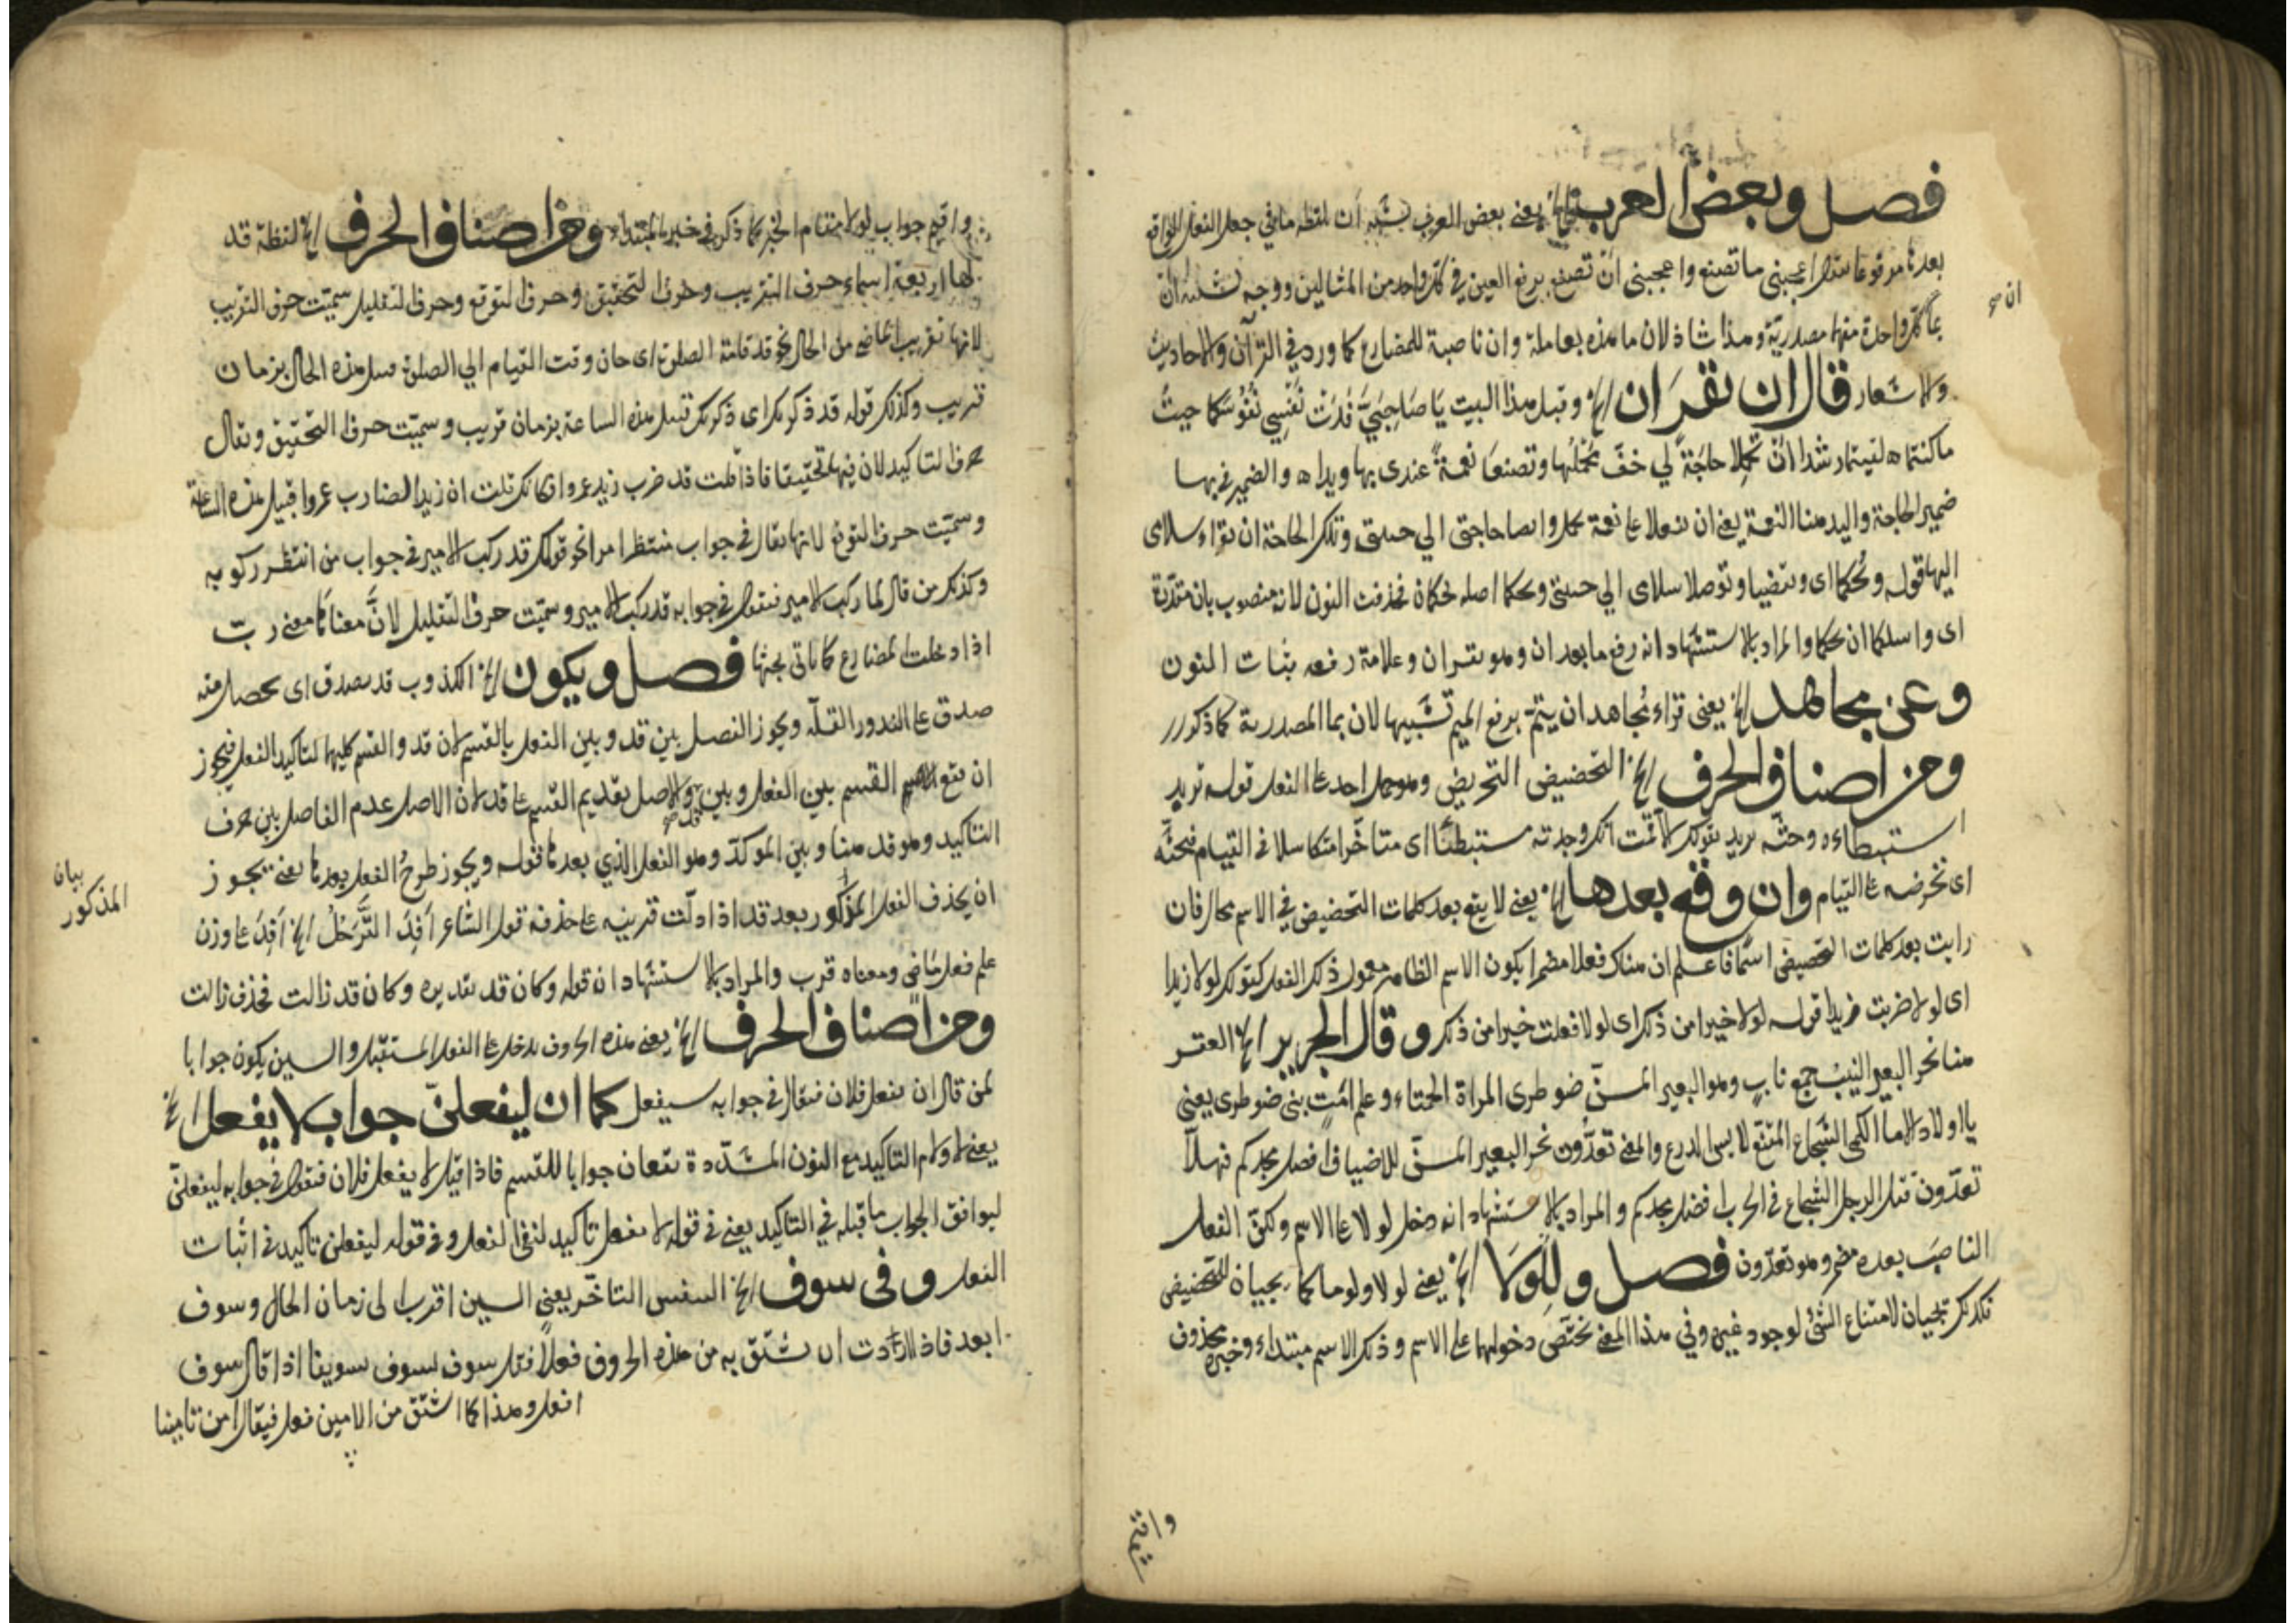 فصل وبعض العرب الخ يعني بعض العرب شبه أن لفظه ما في جعل الفعل الواقع
بعدها مرفوعا مثل اعجبني ما تصنع واعجبني ان تصنع برفع العين في كل واحد من المثالين ووجه
كل واحدة منهما مصدرية وهذا شاذ لان ما هذه بعاملة وان ناصبة للمضارع كما ورد في القرآن والاحاديث
ان صح
والاشعار قال ان تقرآن الخ وقبل هذا البيت يَا صَاحِبَيَّ فَدَتْ نَفْسِي نُفُوْسَكُما حيثُ
ما كنتما لقيتما رشدا اَنْ تحملا حاجَةً لي خفّ محملُها وتصنعا نعمةً عندى بها ويدا والضمير في بها
ضمير الحاجة واليد هنا النعمة يعني ان تفعلا نعمة حاجتي الي وتلك الحاجة ان تقراء سلاى
اليها قوله ويحكما اى وتوصلا سلاى الي اصله فحذفت النون لانه منصوب بان مقدّرة
اى ان والمراد بالاستشهاد انه رفع ما بعد ان وهو تقران وعلامة رفعه بثبات النون
وعن مجاهد الخ يعنى قراء مُجاهد ان يتمّ برفع الميم تشبيها لان بما المصدرية كما ذكور
ومن اصناف الحرف الخ التحضيض التحريض وهو حمل احد على الفعل قوله تريد
استبطاءه وحثّه يريد بقولك لاقمت انك وجدته مستبطئًا اى متأخّرا متكاسلا في القيام فتحثّه
اى تحرضه على القيام وان وقع بعدها الخ يعني لا يقع بعد كلمات التحضيض في الاسم فان
رايت بعد كلمات التحضيض اسما فاعلم ان هناك فعلا مضمرا يكون الاسم الظاهر معمول ذلك الفعل كقولك لولا زيدا
اى لولا ضربت زيدا قوله لولا خيرا من ذلك اى لولا فعلت خيرا من ذلك وقال الجرير الخ العقر
هنا نحر البعير النيب جمع ناب وهو البعير المسنّ ضوطرى المراة الحمقاء وعلم امّت بنى ضوطرى يعني
يا اولاد الاماء الكمى الشجاع المقنّع لابس الدرع والمعنى تعدّون نحر البعير المسنّ للاضياف افضل مجدكم فهلاّ
تعدّون قتل الرجل الشجاع في الحرب افضل مجدكم والمراد بالاستشهاد انه دخل لولا على الاسم ولكن الفعل
الناصب بعده مضمر وهو تعدّون فصل ولِلَوْلَا الخ يعني لولا ولوما كما يجيان للتحضيض
كذلك تجيان لامتناع الشئ لوجود غيره وفي هذا المعنى تختصّ دخولهما على الاسم وذلك الاسم مبتداء وخبره محذوف
واقيم
واقيم جواب لولا مقام الخبر كما ذكر في خبر المبتداء ومن اصناف الحرف الخ لفظة قد
لها اربعة اسماء حرف التقريب وحرف التحقيق وحرف التوقع وحرف التقليل سميّت حرف التقريب
لانها تقريب الماضي من الحال نحو قد قامة الصلوة اى حان وقت القيام الي الصلوة قبل هذه الحال بزمان
قريب وكذلك قوله قد ذكوتك اى ذكوتك قبل هذه الساعة بزمان قريب وسميّت حرف التحقيق ويقال
حرف التاكيد لان فيها تحقيقا فاذا قلت قد ضرب زيد عمروا فكانك قلت ان زيدا لضارب عمروا قبيل هذه الساعة
وسميّت حرف التوقع لانها تقال في جواب منتظر امرا نحو قولك قد ركب الامير في جواب من انتظر ركوبه
وكذلك من قال لما ركب الامير فتقول في جوابه قد ركب الامير وسميّت حرف التقليل لانَّ معناها معنى ربّ
اذا دخلت المضارع كما يأتى بحثها فصل ويكون الخ الكذوب قد يصدق اى يحصل منه
صدق على الندور القلّة ويجوز الفصل بين قد وبين الفعل بالقسم لان قد والقسم كليهما لتاكيد الفعل فيجوز
ان يقع القسم بين الفعل وبين قد والاصل تقديم القسم على قد لان الاصل عدم الفاصل بين حرف
التاكيد وهو قد هنا وبين الموكدّ وهو الفعل الذي بعدها قوله ويجوز طرحُ الفعل بعدها يعنى يجوز
بيان
المذكور
ان يحذف الفعل المذكور بعد قد اذا دلّت قرينة على حذفه قول الشاعر اَفِدَ التَّرَحُّلُ الخ اَفِدَ على وزن
علم فعل ماضى ومعناه قرب والمراد بالاستشهاد ان قوله وكان قد تقديره وكان قد زالت فحذف زالت
ومن اصناف الحرف الخ يعني هذه الحروف تدخل على الفعل المستقبل والسين يكون جوابا
لمن قال ان يفعل فلان فيقال في جوابه سيفعل كما ان ليفعلنّ جواب لا يفعل الخ
يعنى لام التاكيد مع النون المشدّدة تقعان جوابا للقسم فاذا قيل لا يفعل فلان فتقول في جوابه ليفعلنّ
ليوافق الجواب ما قبله في التاكيد يعني في قوله لا يفعل تاكيد لنفي الفعل وفي قوله ليفعلن تاكيد في اثبات
الفعل وفى سوف الخ التنفيس التاخّر يعني السين اقرب الى زمان الحال وسوف
ابعد فاذا اردت ان تشتّق به من هذه الحروف فعلاً فقل سوف يسوف تسويفا اذا قال سوف
افعل وهذا كما اشتّق من الامين فعل فيقال امن تامينا